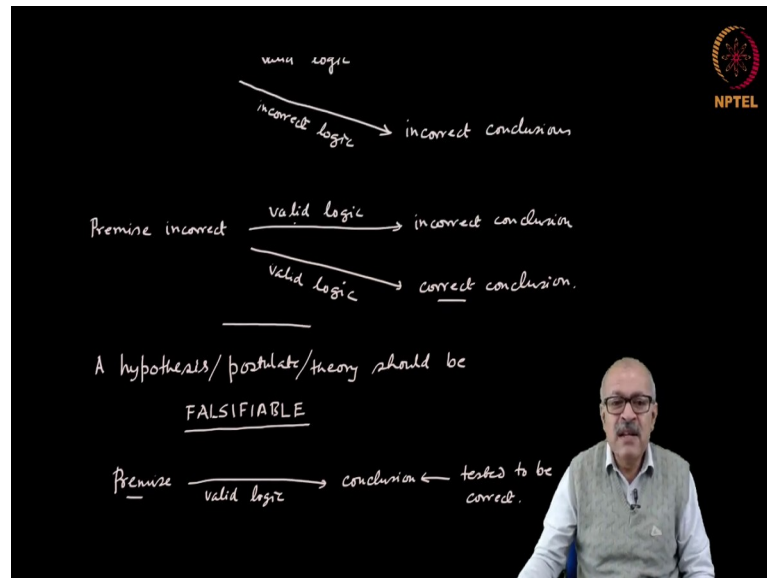 logic
NPTEL
incorrect logic
incorrect conclusions
valid logic
Premise incorrect
incorrect conclusion
valid logic
correct conclusion.
A hypothesis/postulate/theory should be
FALSIFIABLE
Premise
valid logic
conclusion
tested to be
correct.